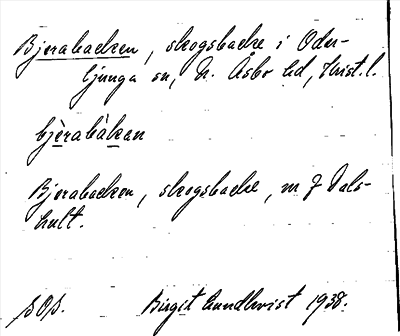 Bjerabacken, skogsbacke i Oder-
ljunga sn, N. Åsbo hd, Krist. l.
bjèrabàkan
Bjerabacken, skogsbacke, m f Dals-
hult.
Birgit Lundkvist 1938.